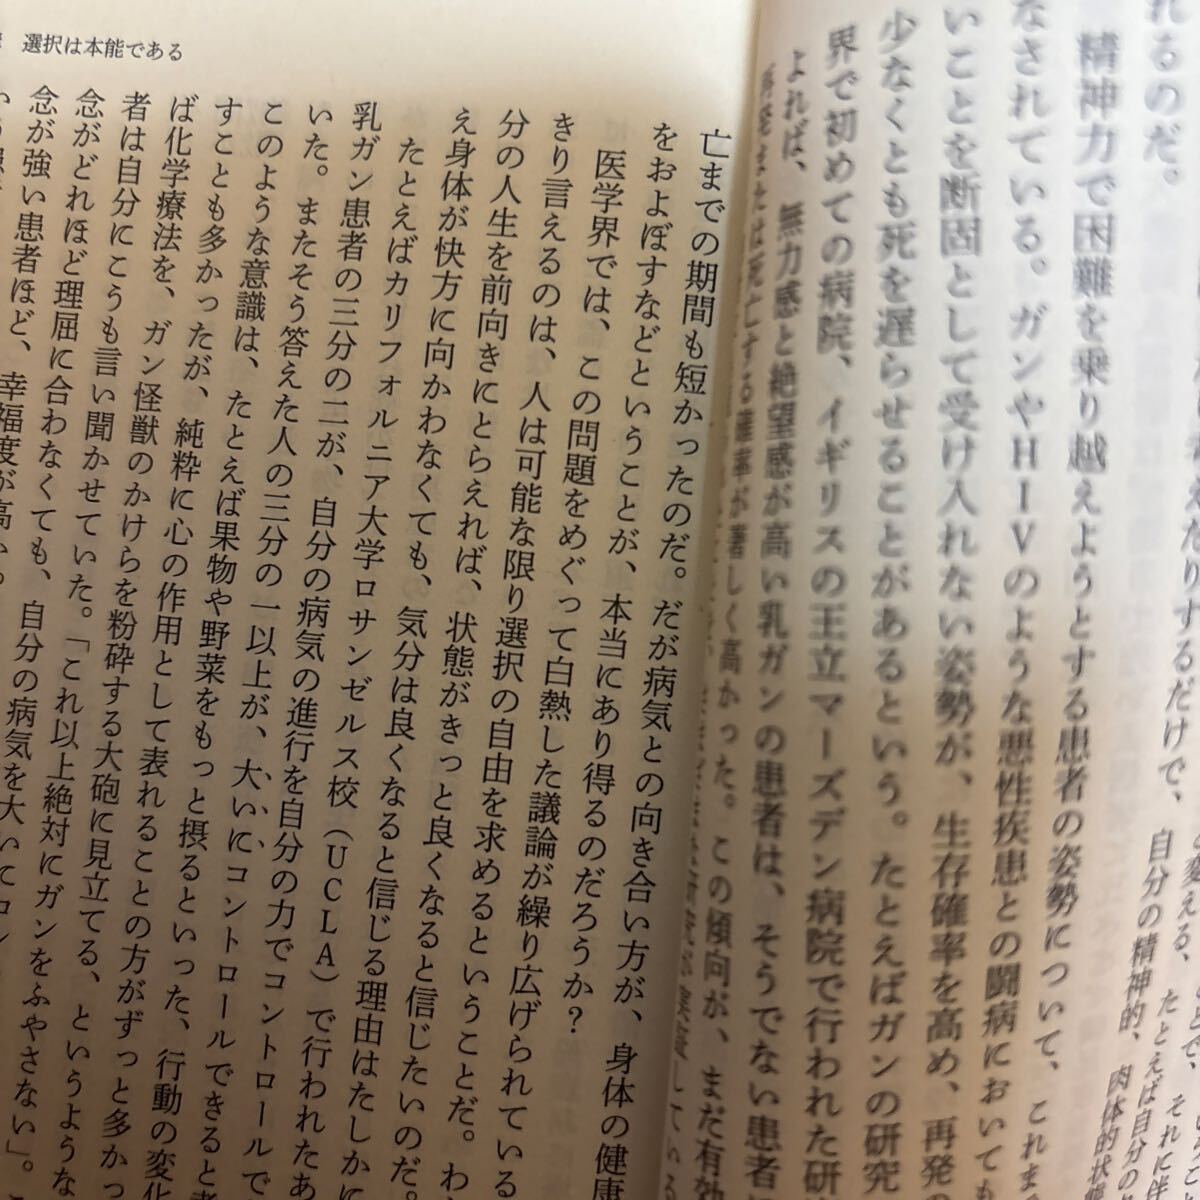 れるのだ。
精神力で困難を乗り越えようとする患者の姿勢について、これま
なされている。ガンやHIVのような悪性疾患との闘病においても
いことを断固として受け入れない姿勢が、生存確率を高め、再発の
少なくとも死を遅らせることがあるという。たとえばガンの研究
界で初めての病院、イギリスの王立マーズデン病院で行われた研
よれば、無力感と絶望感が高い乳ガンの患者は、そうでない患者に
再発または死亡する確率が著しく高かった。この傾向が、まだ有効
選択は本能である
亡までの期間も短かったのだ。だが病気との向き合い方が、身体の健康
をおよぼすなどということが、本当にあり得るのだろうか？
医学界では、この問題をめぐって白熱した議論が繰り広げられている
きり言えるのは、人は可能な限り選択の自由を求めるということだ。わ
分の人生を前向きにとらえれば、状態がきっと良くなると信じたいのだ。
え身体が快方に向かわなくても、気分は良くなると信じる理由はたしかに
たとえばカリフォルニア大学ロサンゼルス校（UCLA）で行われたあ
乳ガン患者の三分の二が、自分の病気の進行を自分の力でコントロールで
いた。またそう答えた人の三分の一以上が、大いにコントロールできると
このような意識は、たとえば果物や野菜をもっと摂るといった、行動の変化
すことも多かったが、純粋に心の作用として表れることの方がずっと多かっ
ば化学療法を、ガン怪獣のかけらを粉砕する大砲に見立てる、というような
者は自分にこうも言い聞かせていた。「これ以上絶対にガンをふやさない」。
念がどれほど理屈に合わなくても、自分の病気を大いにコン
念が強い患者ほど、幸福度が高い。